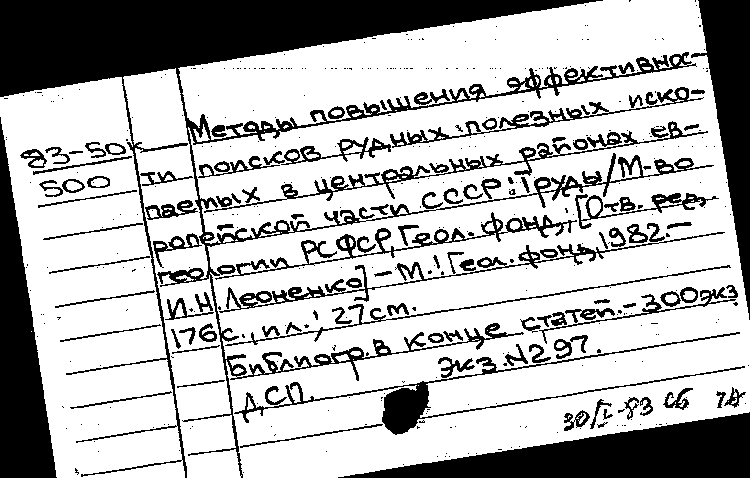 Методы повышения эффективнос-
83-50к
500
ти поисков рудных полезных иско-
паемых в центральных районах ев-
ропейской части СССР: Труды/М-во
геологии РСФСР, Геол. фонд,; [Отв. ред.
И.Н. Леоненко] - М.: Геол. фонд, 1982.-
176с., ил.; 27см.
Библиогр. в конце статей.-300экз
ДСП. Экз. N297.
30/I-83 сб